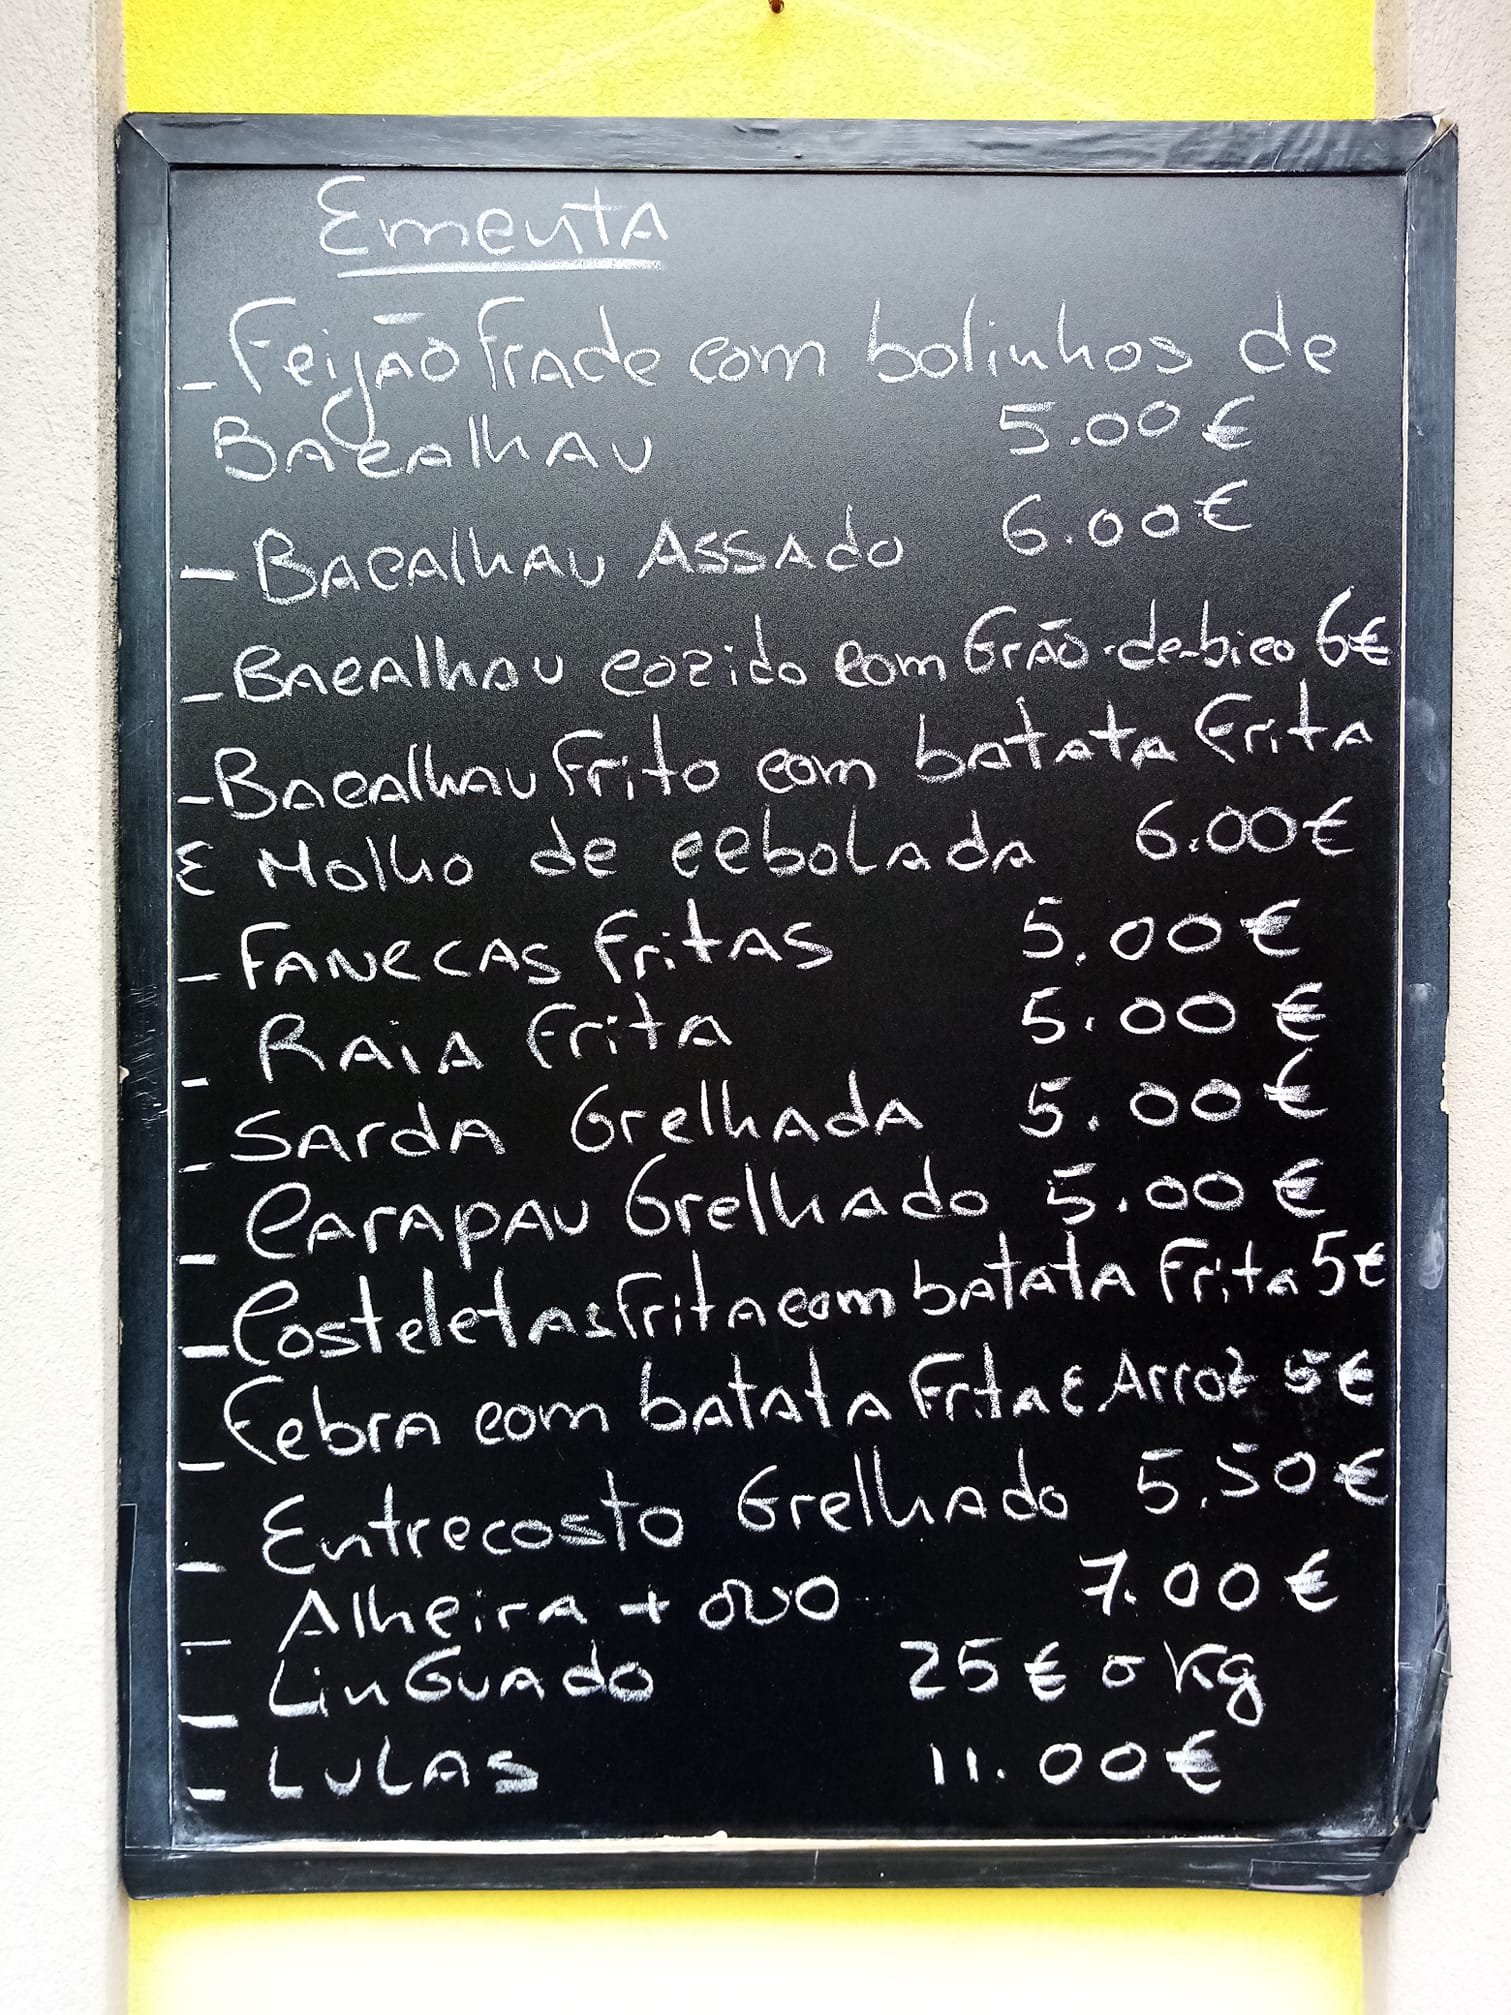 Ementa
- Feijão Frade com bolinhos de
Bacalhau 5.00 €
- Bacalhau Assado 6.00 €
- Bacalhau cozido com Grão-de-bico 6€
- Bacalhau Frito com batata Frita
E Molho de cebolada 6.00 €
- Fanecas Fritas 5.00 €
- Raia Frita 5.00 €
- Sarda Grelhada 5.00 €
- Carapau Grelhado 5.00 €
- Costeletas Frita com batata Frita 5€
- Febra com batata Frita E Arroz 5€
- Entrecosto Grelhado 5.50 €
- Alheira + ovo 7.00 €
- Linguado 25 € o Kg
- Lulas 11.00 €